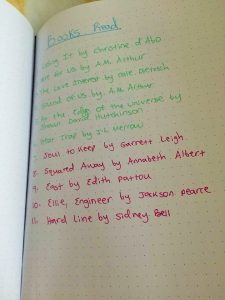 Books Read
Losing It by Christine d'Abo
are for Us by A.M. Arthur
The Love Interest by Cale Dietrich
Sound of Us by A.M. Arthur
At the Edge of the universe by
Shaun David Hutchinson
Star Trap by J.L Merrow
7. Soul to Keep by Garrett Leigh
8. Squared Away by Annabeth Albert
9. East by Edith Pattou
10. Ellie, Engineer by Jackson Pearce
11. Hard Line by Sidney Bell